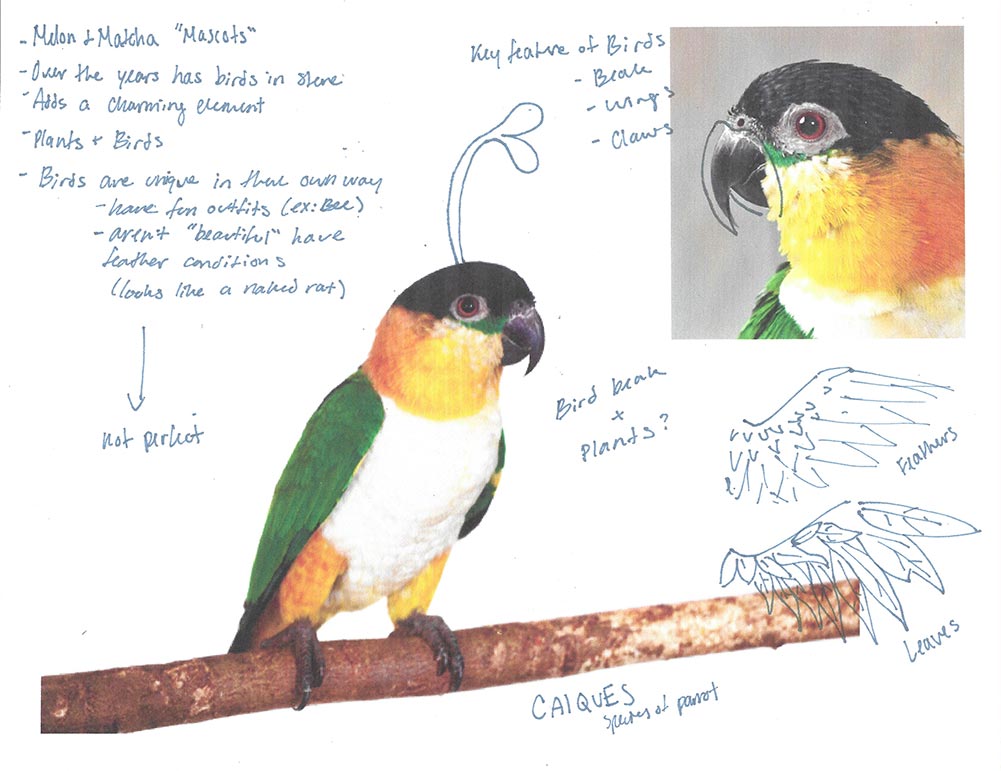 - Melon + Matcha "Mascots"
- Over the years has birds in store
- Adds a charming element
- Plants + Birds
- Birds are unique in their own way
- have fun outfits (ex: Bee)
- aren't "beautiful" have
feather conditions
(looks like a naked rat)
not perfect
Key feature of Birds
- Beak
- Wings
- Claws
Bird beak
+
plants?
Feathers
Leaves
CAIQUES
Species of parrot